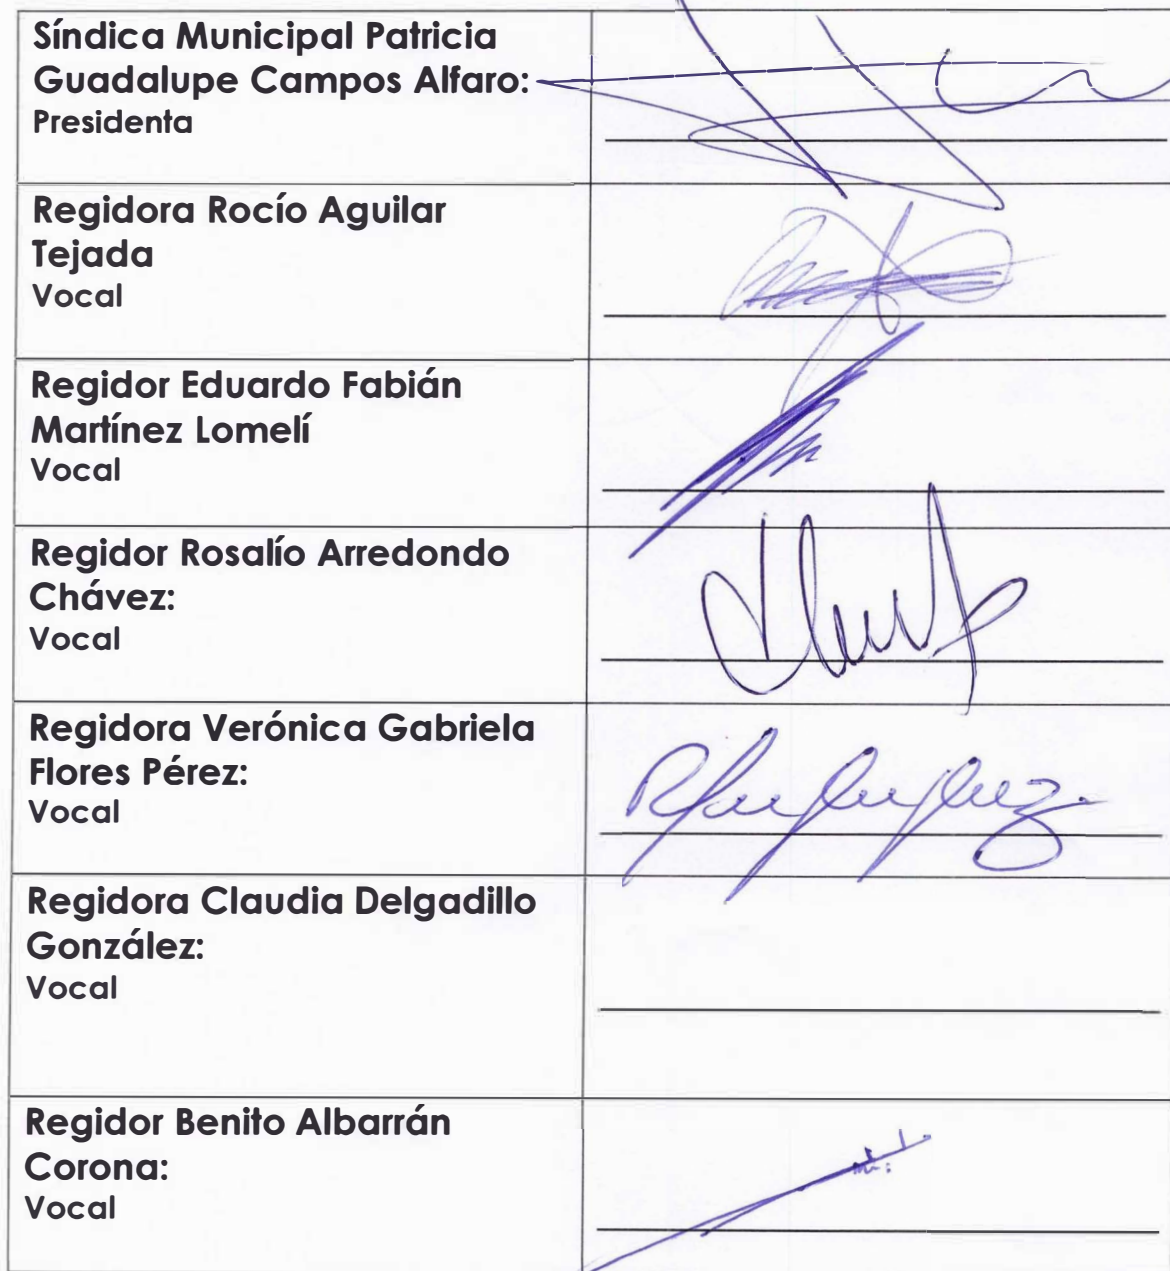 Síndica Municipal Patricia
Guadalupe Campos Alfaro:
Presidenta
Regidora Rocío Aguilar
Tejada
Vocal
Regidor Eduardo Fabián
Martínez Lomelí
Vocal
Regidor Rosalío Arredondo
Chávez:
Vocal
Regidora Verónica Gabriela
Flores Pérez:
Vocal
Regidora Claudia Delgadillo
González:
Vocal
Regidor Benito Albarrán
Corona:
Vocal